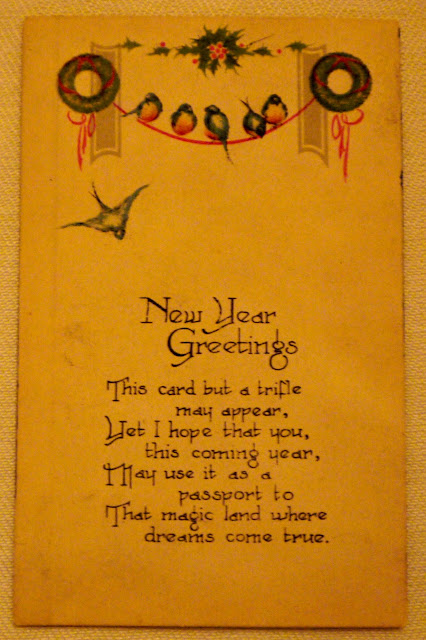 New Year
Greetings
This card but a trifle
may appear,
Yet I hope that you,
this coming year,
May use it as a
passport to
That magic land where
dreams come true.